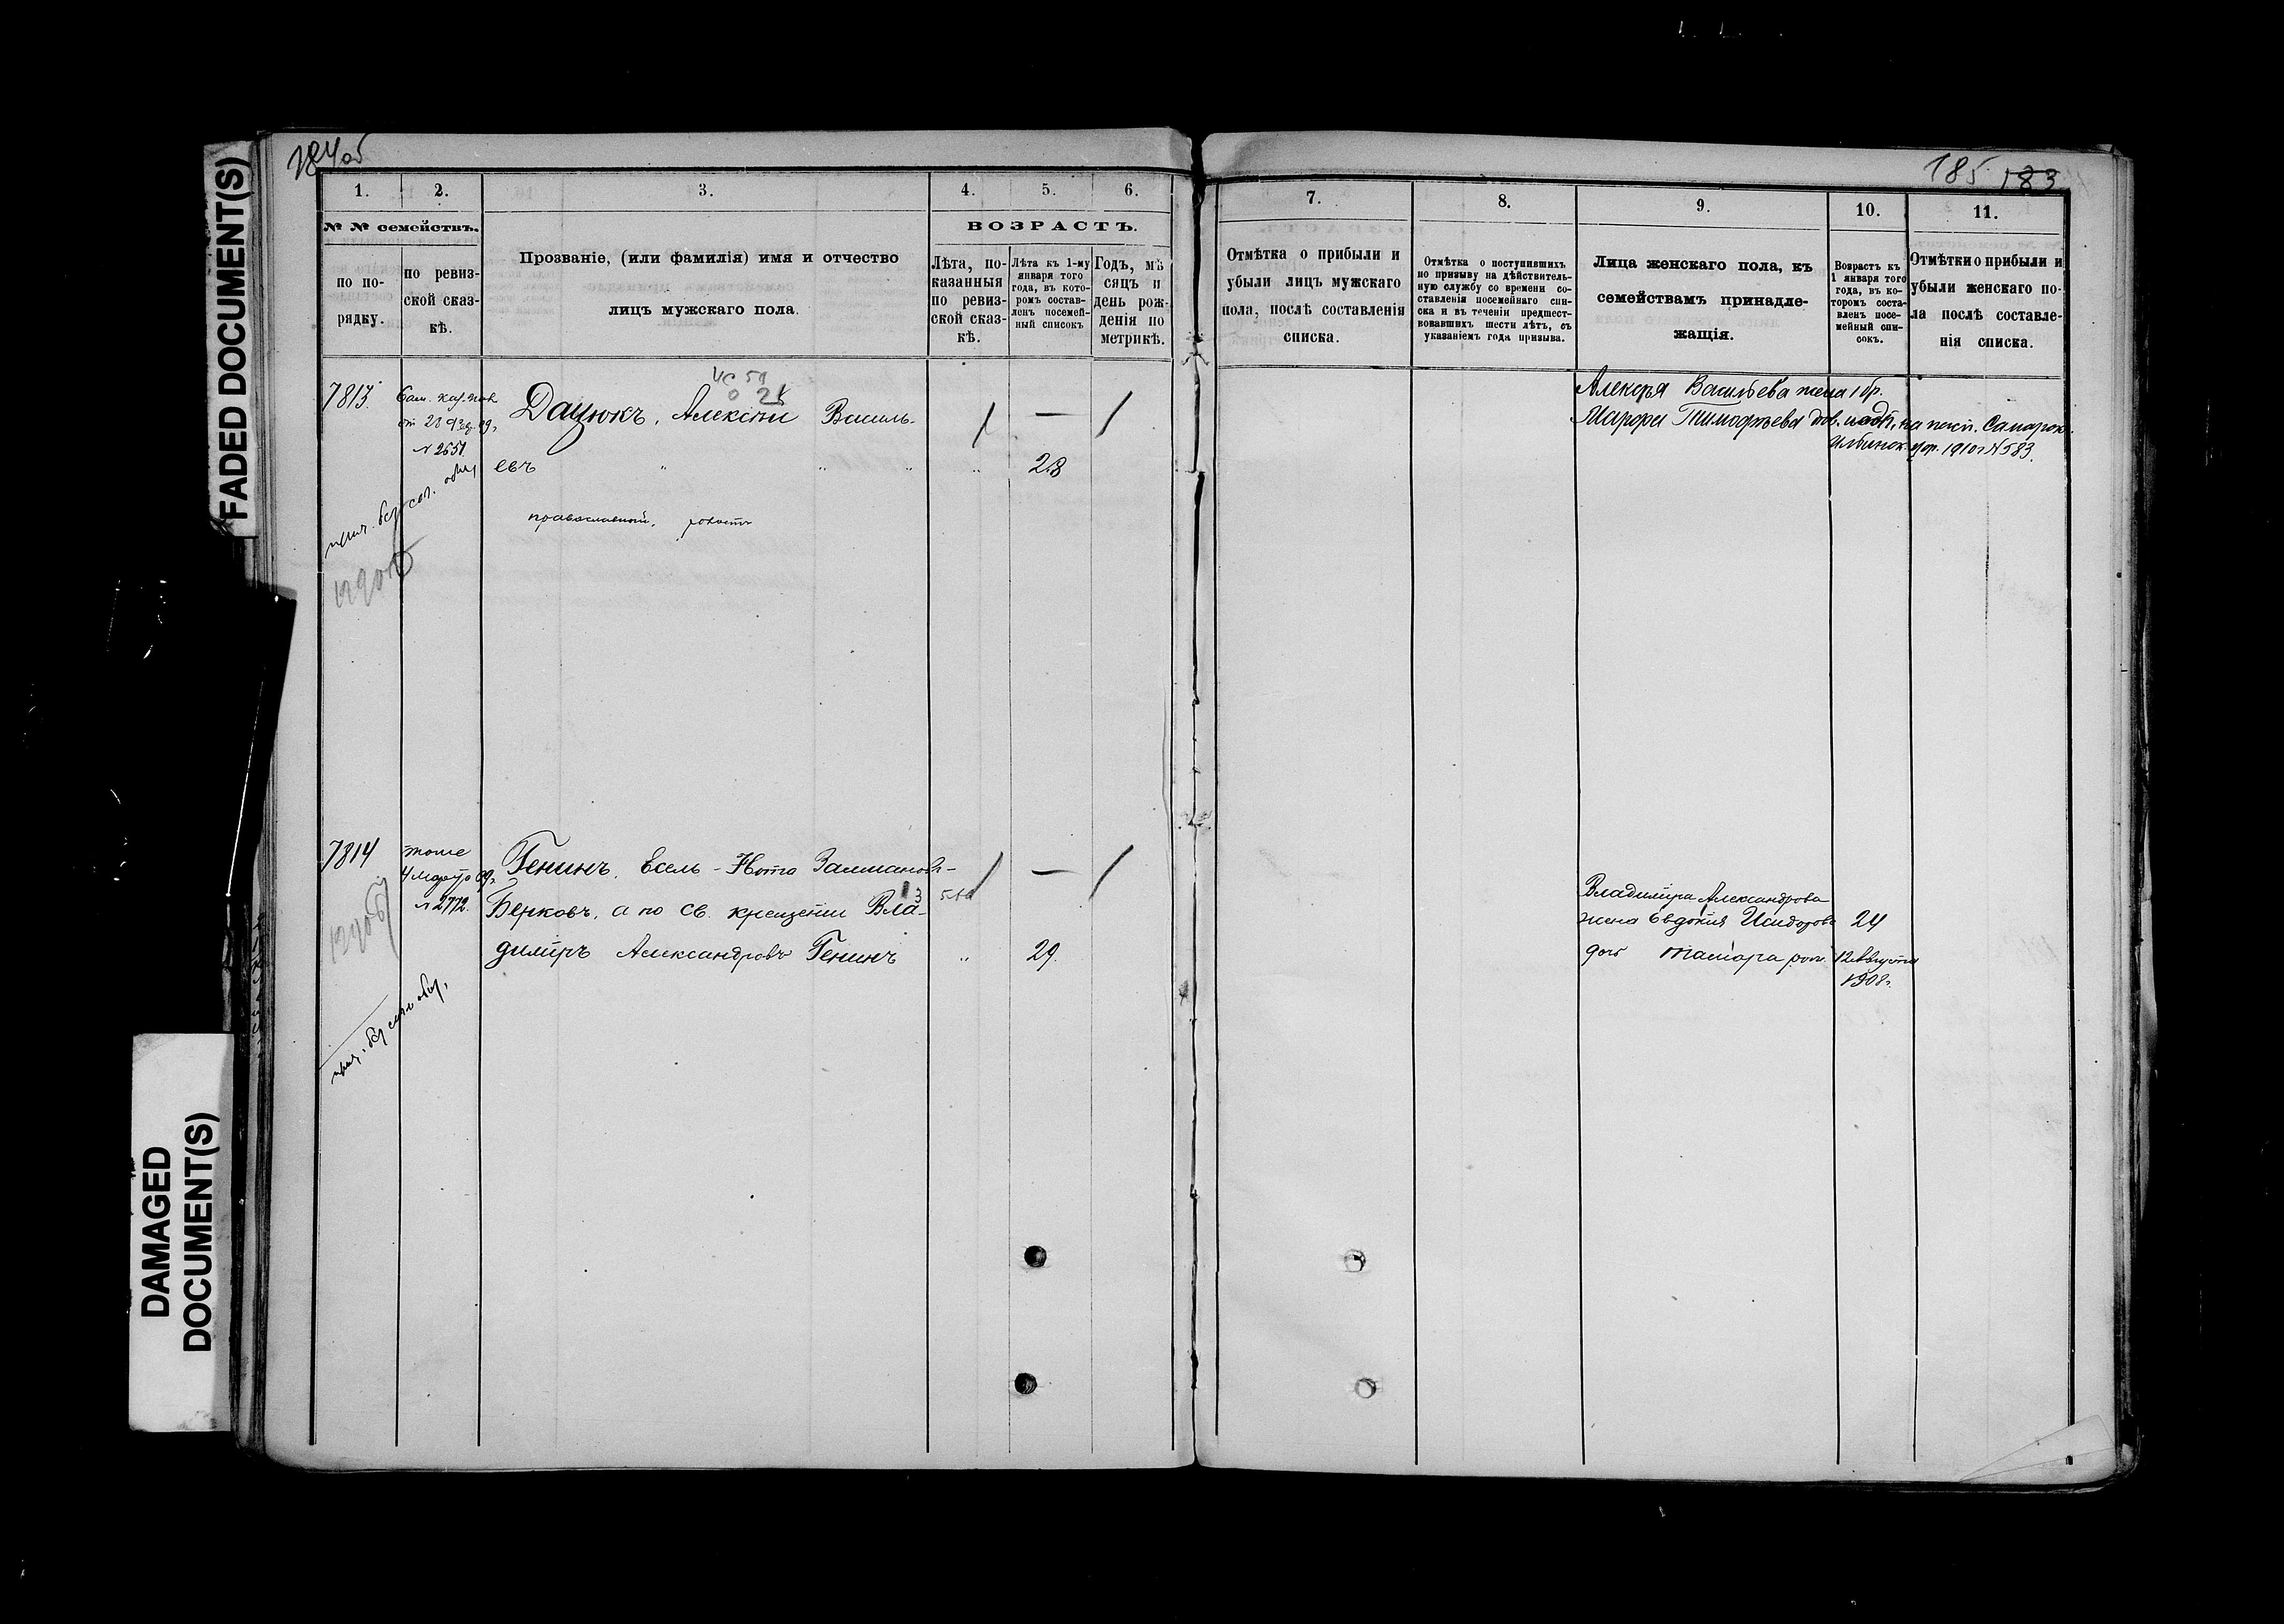 184 об
185 183
FADED DOCUMENT(S)
DAMAGED
DOCUMENT(S)
1.
2.
3.
4.
5.
6.
№ № семействъ.
по по-
рядку.
по ревиз-
ской сказ-
кѣ.
Прозваніе, (или фамилія) имя и отчество
лицъ мужскаго пола.
ВОЗРАСТЪ.
Лѣта, по-
казанныя
по ревиз-
ской сказ-
кѣ.
Лѣта къ 1-му
января того
года, въ кото-
ромъ состав-
ленъ посемей-
ный списокъ
Годъ, мѣ
сяцъ и
день рож-
денія по
метрикѣ.
7813
от 23
№ 2651
Дацюкъ, Алексѣй Василь-
евъ
28
православный, холостъ
7814
тоже
4 Марта 09 г.
№ 2772.
Генинъ, Евель-Нота Залмановъ-
Берковъ, а по св. крещеніи Вла-
диміръ Александровъ Генинъ
29
7.
8.
9.
10.
11.
Отмѣтка о прибыли и
убыли лицъ мужскаго
пола, послѣ составленія
списка.
Отмѣтка о поступившихъ
по призыву на дѣйствитель-
ную службу со времени со-
ставленія посемейнаго спи-
ска и въ теченіи предшест-
вовавшихъ шести лѣтъ, съ
указаніемъ года призыва.
Лица женскаго пола, къ
семействамъ принадле-
жащія.
Возрастъ къ
1 января того
года, въ ко-
торомъ соста-
вленъ посе-
мейный спи-
сокъ.
Отмѣтки о прибыли и
убыли женскаго по-
ла послѣ составле-
нія списка.
Алексѣя Васильева жена 1 бр.
Марфа Тимофѣева
1910 г № 583.
Владиміра Александрова
жена Евдокія Исидорова 24
дочь Тамара род. 12 Августа
1908 г.